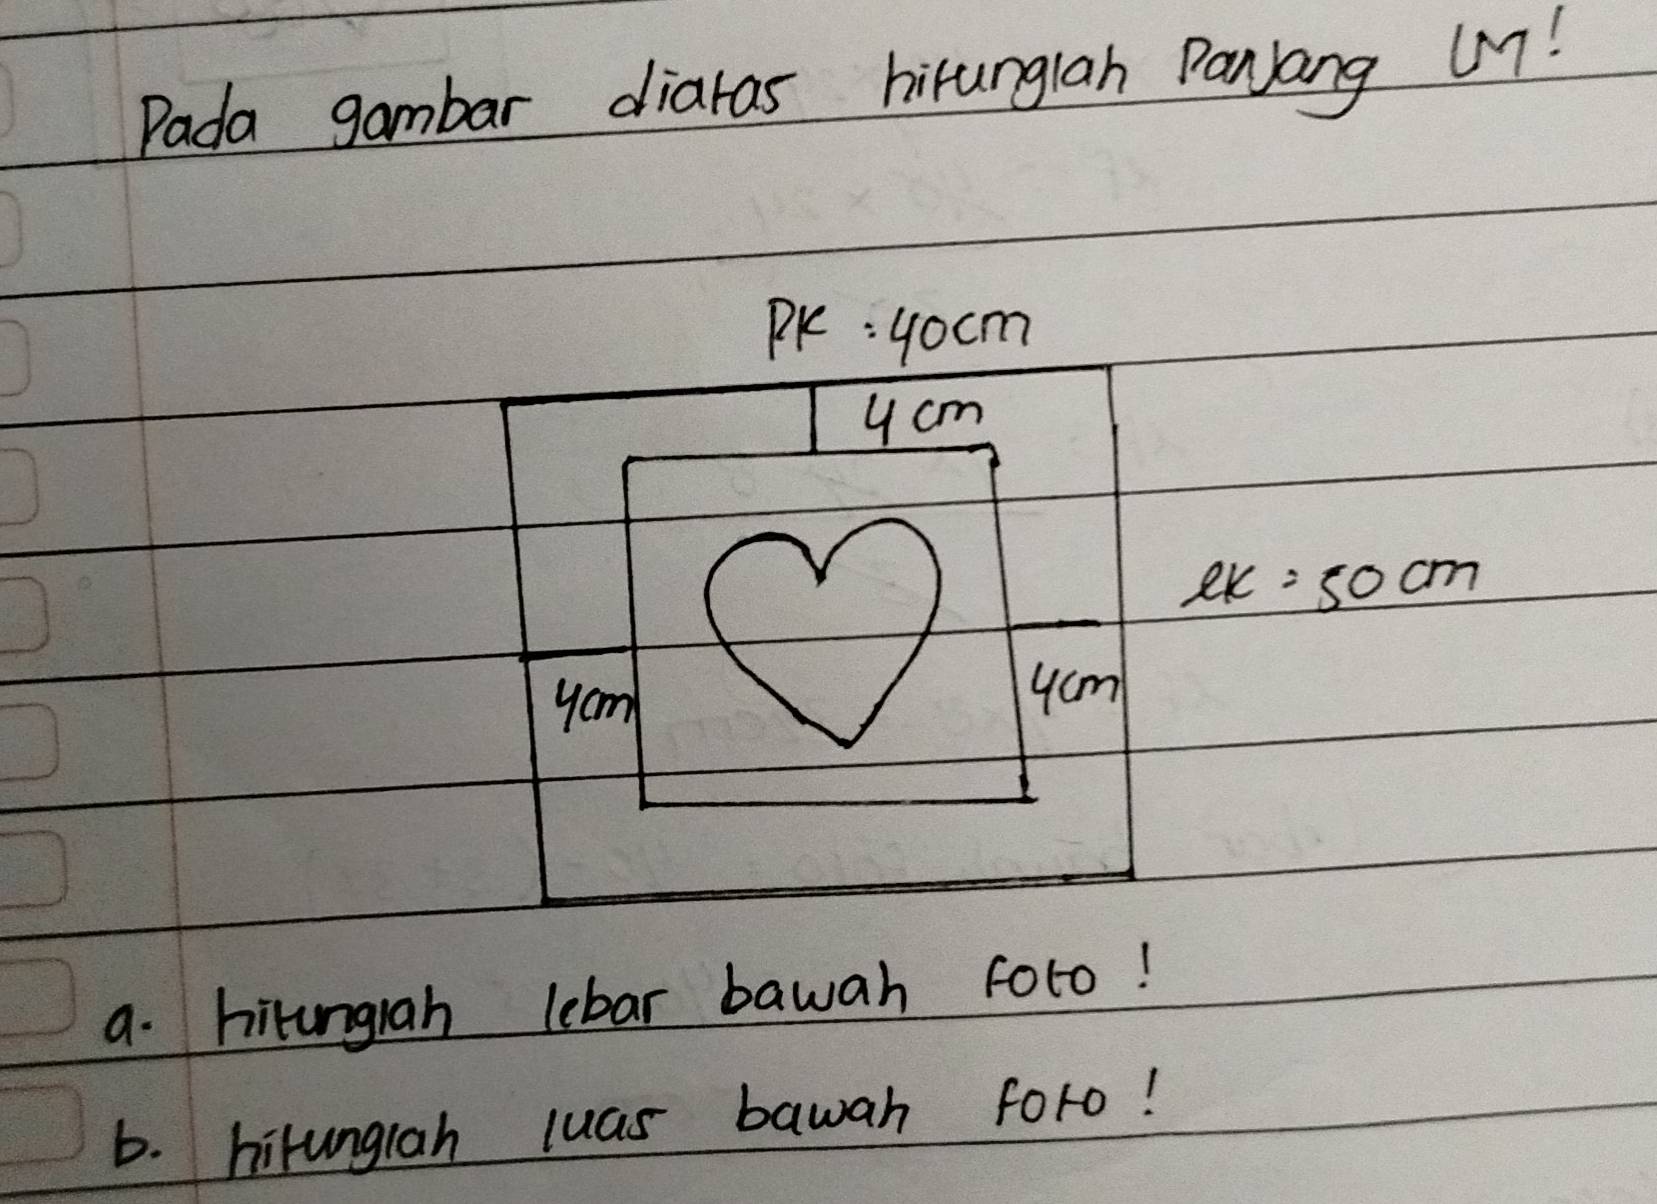 Pada gambar diatas hitunglah Panjang LM!
PK : 40cm
4 cm
lk = 50 cm
4cm
4cm
a. hitunglah lebar bawah foto!
b. hitunglah luas bawah foto!